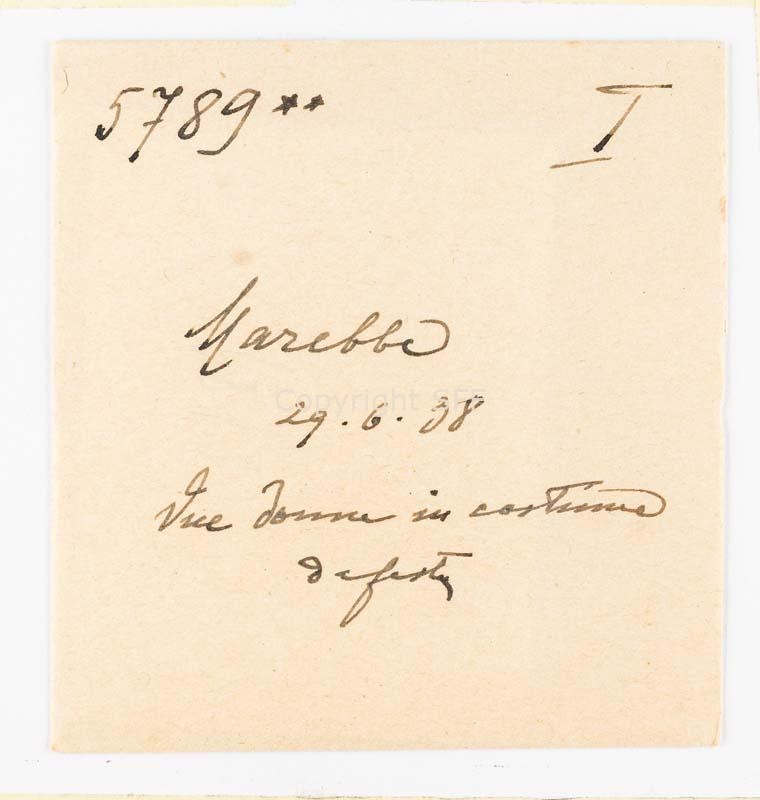 5789** I
Marebbe
Copyright
29.6.38
Due donne in costume
da festa